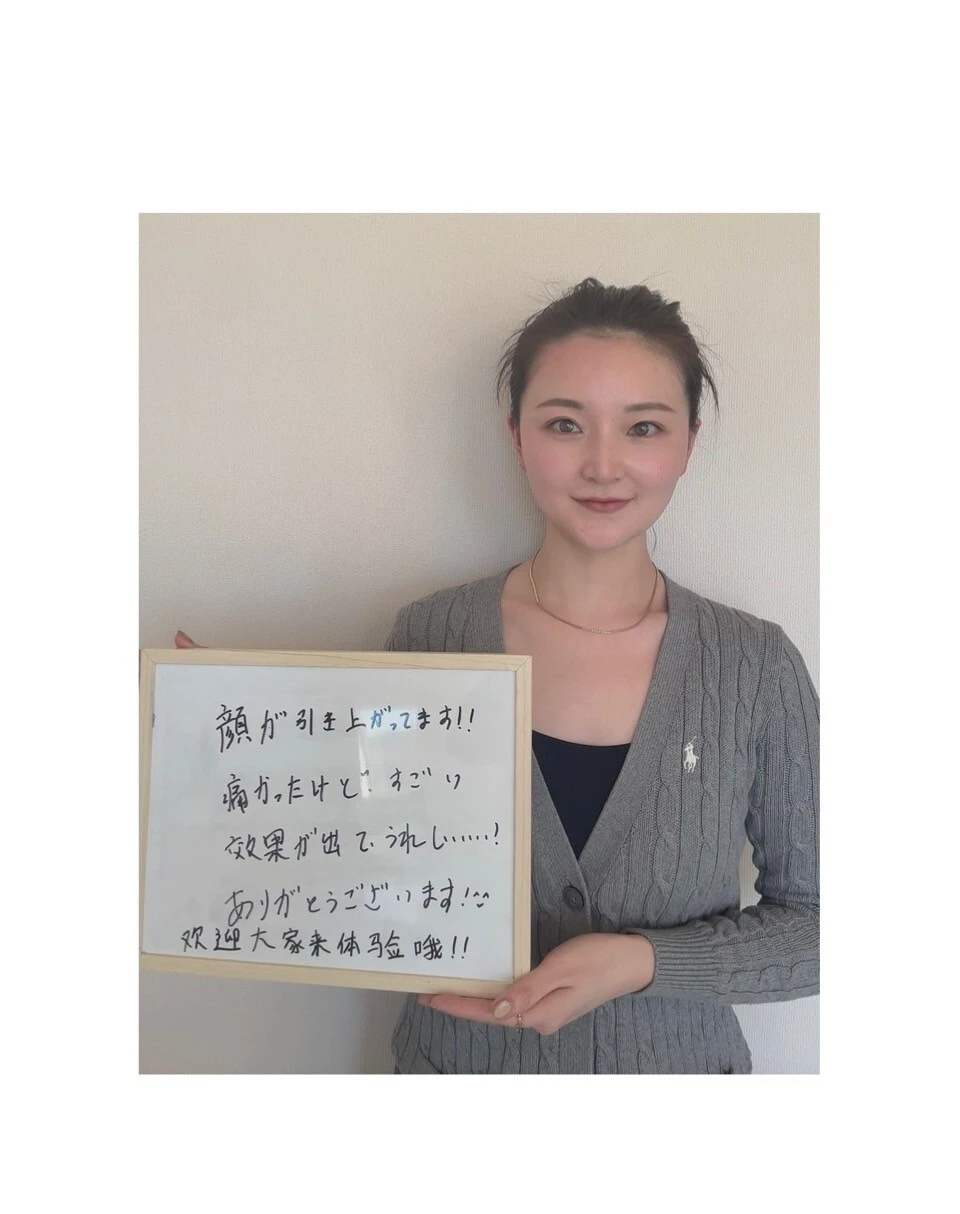 顔が引き上がってます!!
痛かったけど、すごい
効果が出て、うれしい……!
ありがとうございます!^^
欢迎大家来体验哦!!